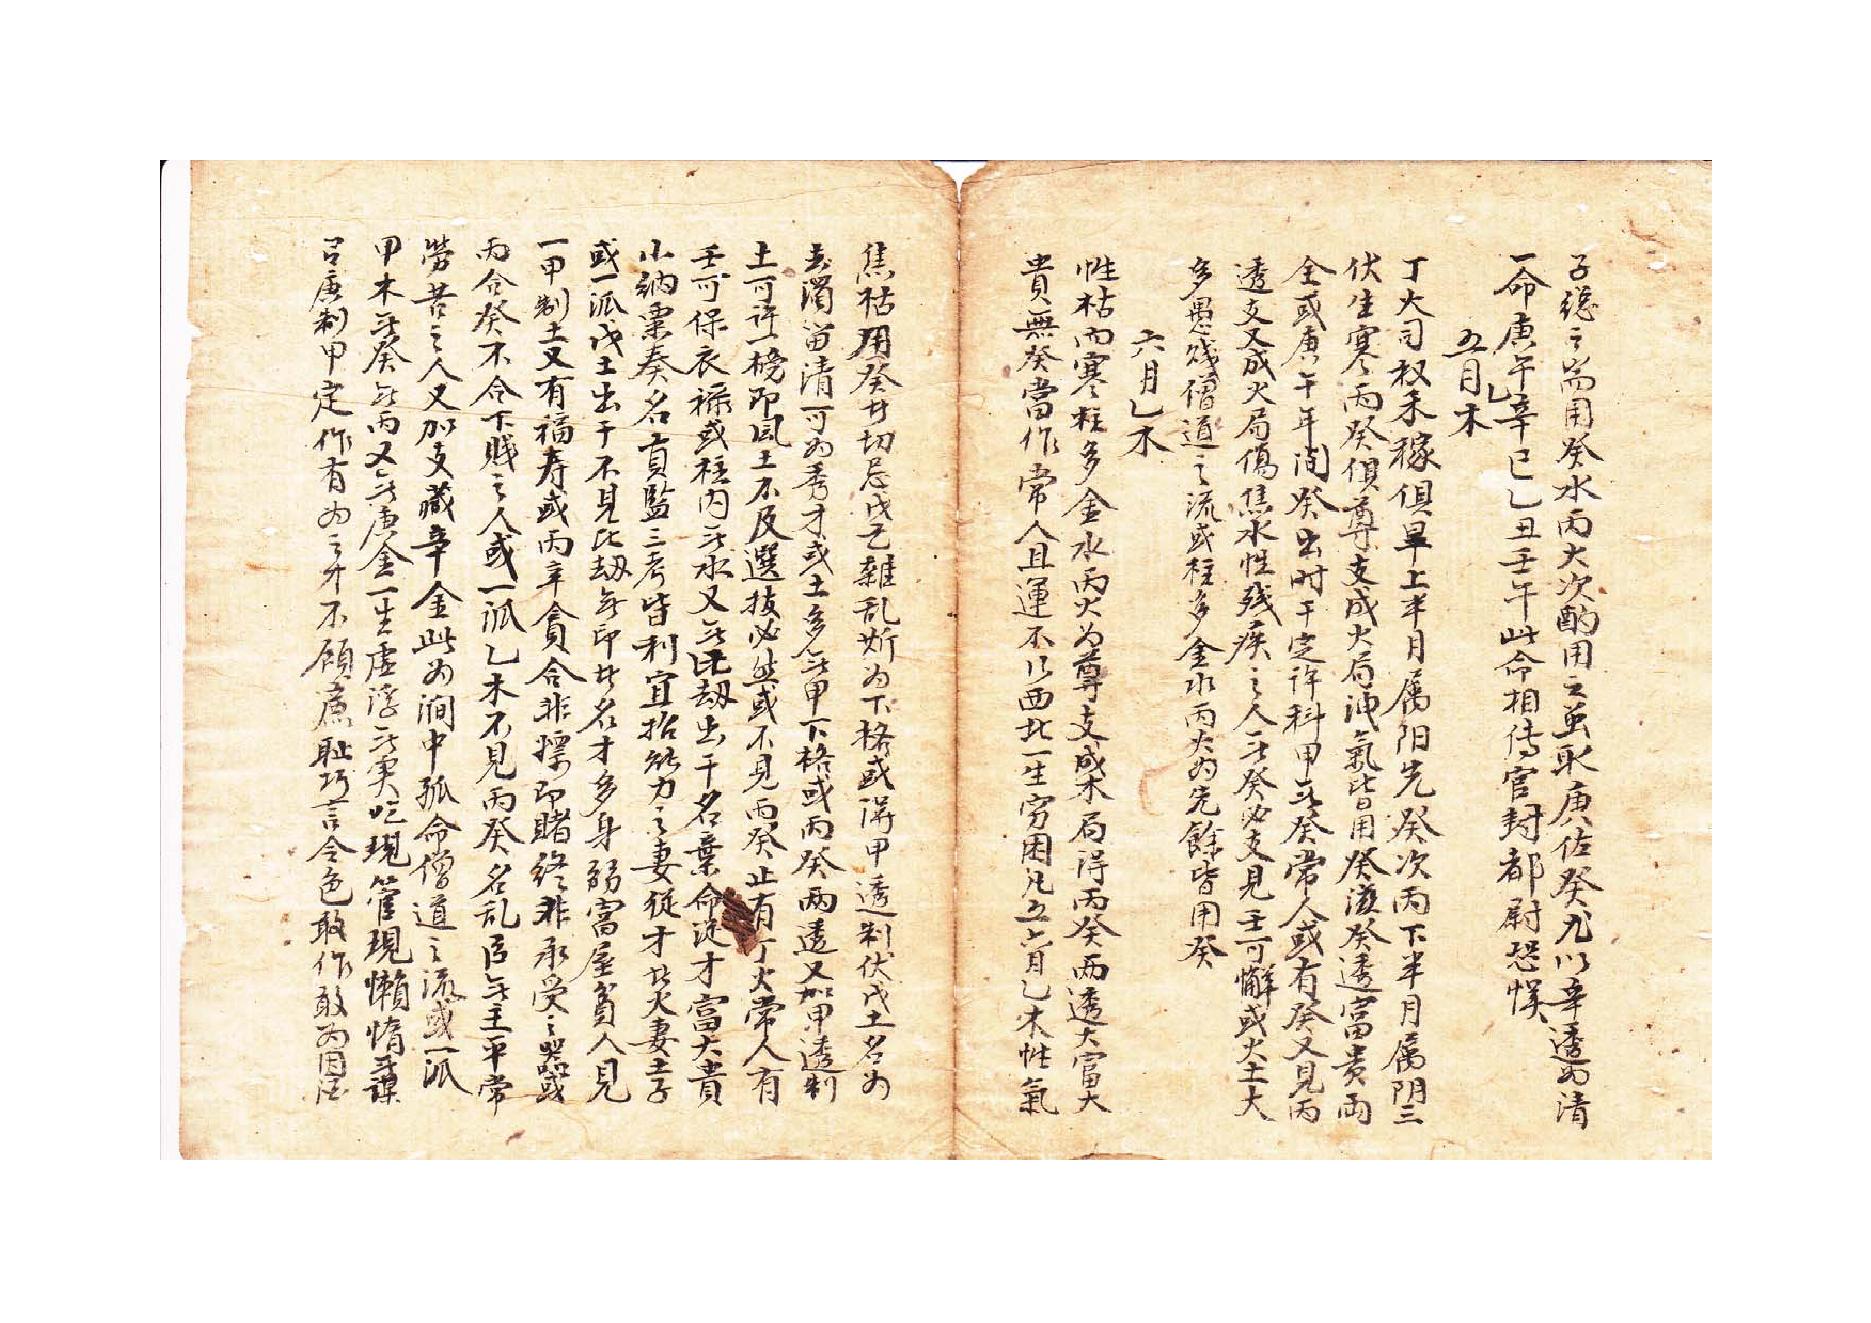 子總之耑用癸水丙火次酌用之虽取庚佐癸尤以辛透为清
一命庚午辛巳乙丑壬午此命相传官封都尉恐悮
五月乙木
丁火司权禾稼俱旱上半月属阳先癸次丙下半月属阴三
伏生寒丙癸俱尊支成火局洩氣皆用癸滋癸透富贵两
全或庚午年间癸出时干定许科甲无癸常人或有癸又見丙
透支又成火局傷焦木性残疾之人无癸必支見壬可懈或火土太
多愚贱僧道之流或柱多金水丙火为先餘皆用癸
六月乙木
性枯而寒柱多金水丙火为尊支成木局得丙癸两透大富大
貴無癸當作常人且運不以西北一生穷困凡五六月乙木性氣
焦枯用癸廿切忌戊己雜乱斯为下格或得甲透制伏戊土名为
去濁留清可为秀才或土多无甲下格或丙癸两透又加甲透制
土可许一榜即風土不及選拔必然或不見丙癸止有丁火常人有
壬可保衣禄或柱内无水又无比劫出干名棄命從才富大貴
小納粟奏名貢監二考皆利宜招能力之妻從才廿火妻土子
或一派戊土出干不見比劫无印廿名才多身弱富屋貧人見
一甲制土又有福寿或丙辛貪合非嫖即賭終非承受之器或
丙合癸不合下賤之人或一派乙木不見丙癸名乱臣无主平常
勞苦之人又加支藏辛金此为涧中孤命僧道之流或一派
甲木无癸无丙又无庚金一生虚浮无实吃現管現懶惰无謀
只庚制甲定作有为之才不顾廉耻巧言令色敢作敢为因法